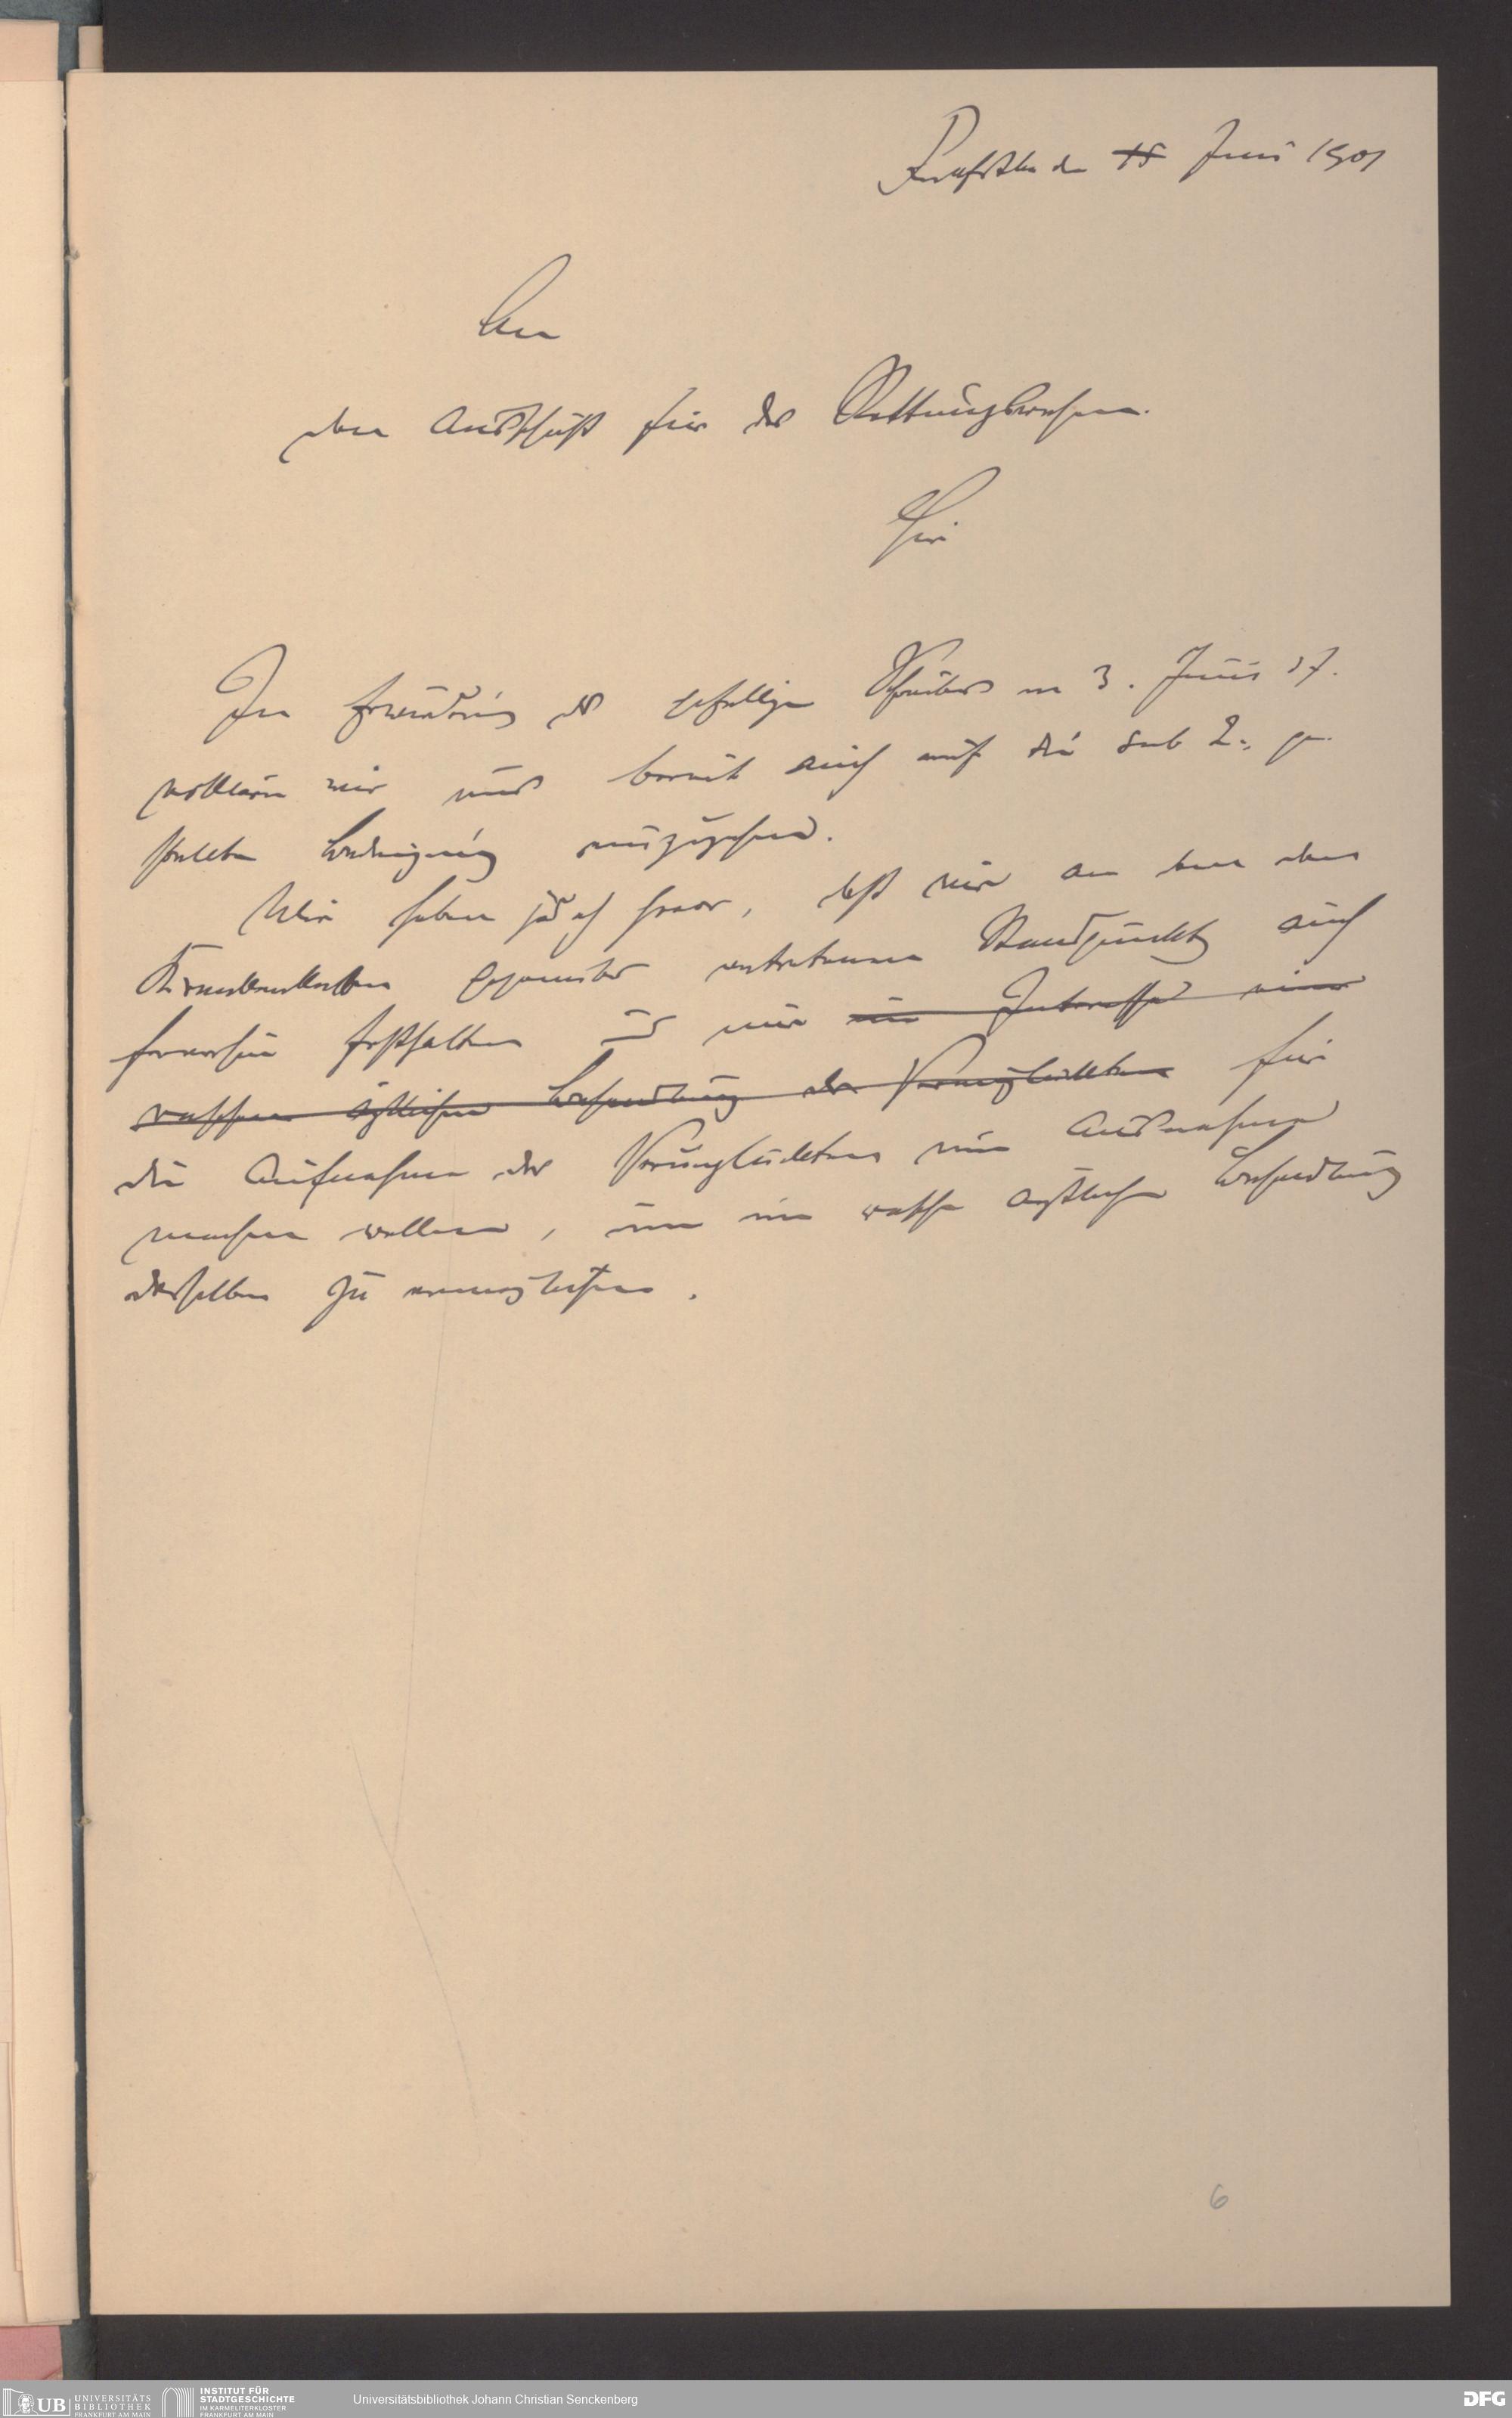 Frankfurt den 15 Juni 1901
An
den Ausschuß für das Rettungswesen.
Hier
In Erwiderung des gefälligen Schreibens vom 3. Juni d. J.
erklären wir uns bereit auch auf die sub 2, ge-
stellte Bedingung einzugehen.
Wir heben jedoch hervor, daß wir an dem den
Krankenkassen gegenüber vertretenen Standpunkt auch
fernerhin festhalten und nur im Interesse einer
raschen ärztlichen Behandlung der Verunglückten für
die Aufnahme der Verunglückten eine Ausnahme
machen wollen, um eine rasche ärztliche Behandlung
derselben zu ermöglichen.
6
UB UNIVERSITÄTS
BIBLIOTHEK
FRANKFURT AM MAIN
INSTITUT FÜR
STADTGESCHICHTE
IM KARMELITERKLOSTER
FRANKFURT AM MAIN
Universitätsbibliothek Johann Christian Senckenberg
DFG